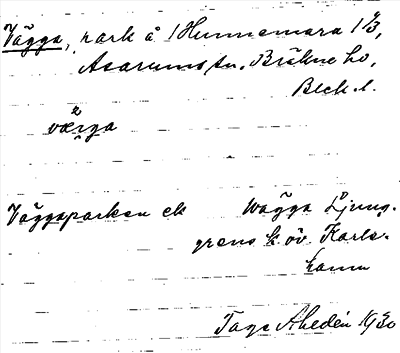 Vägga, park å 1 Hunnemara 1/3,
Asarums sn. Bräkne hd,
Blek. l.
vœga
Väggaparken ek Wägga Ljung-
grens k. öv. Karls-
hamn
Tage Ahldén 1930